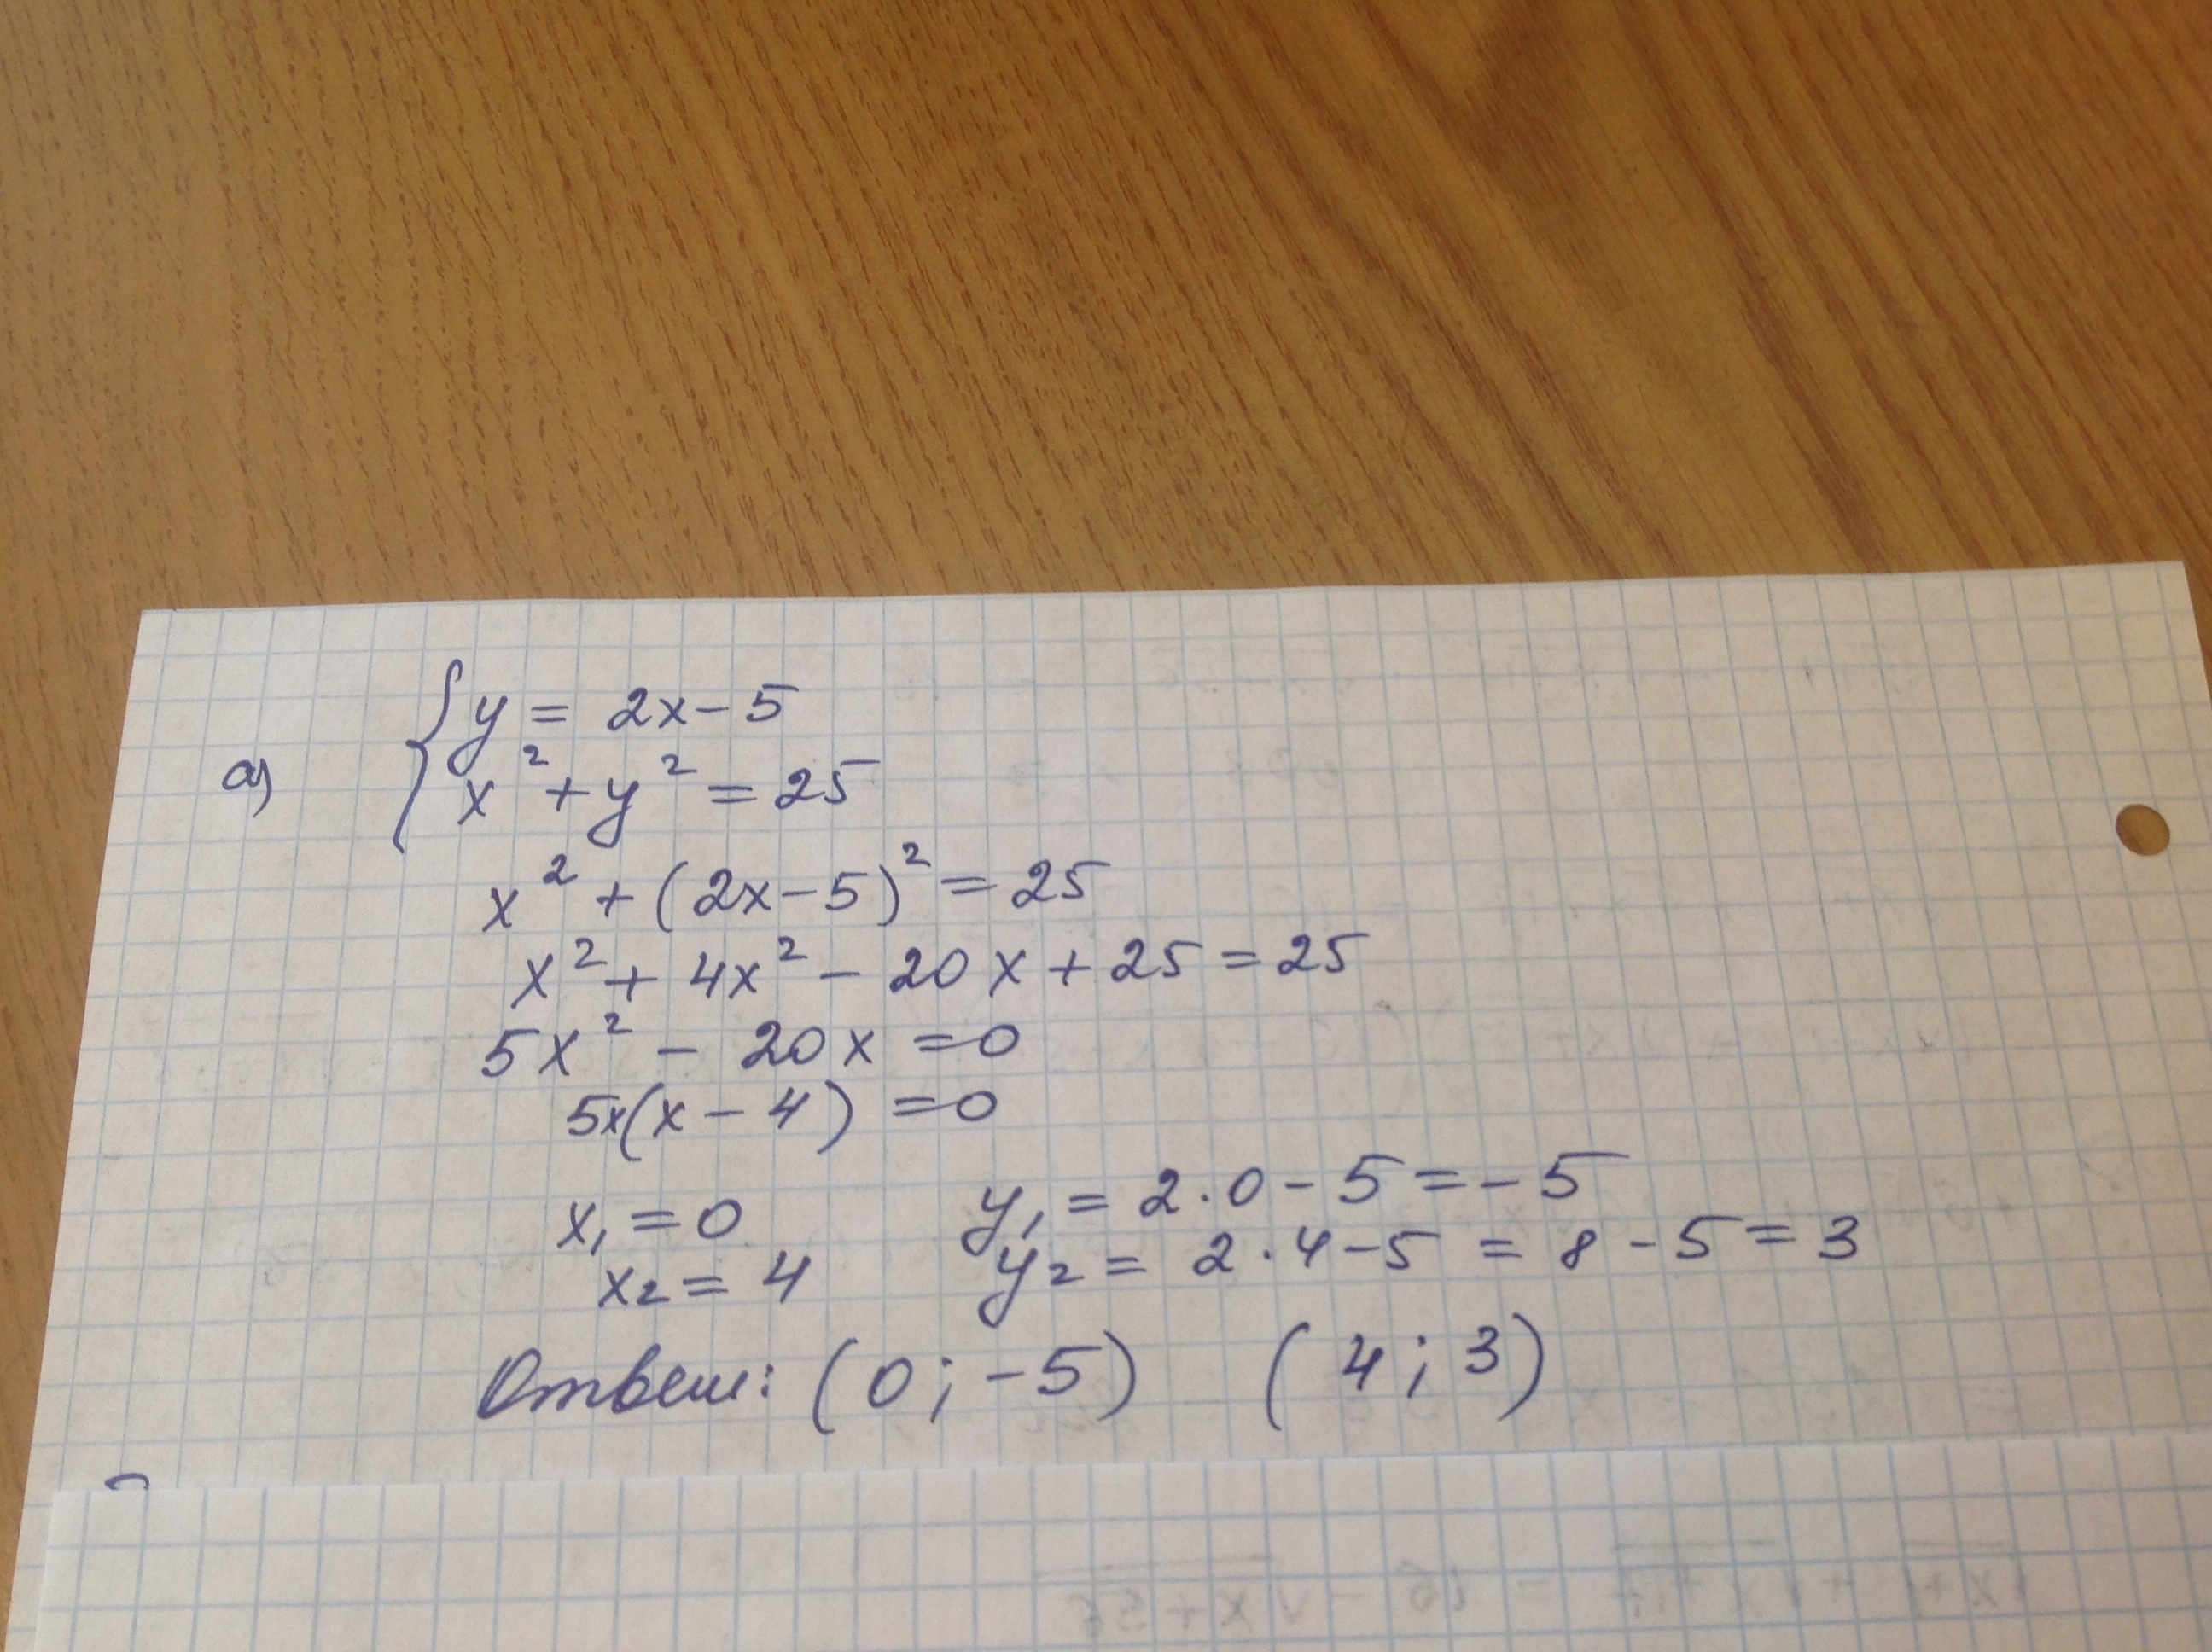 а) { y = 2x - 5
x² + y² = 25
x² + (2x - 5)² = 25
x² + 4x² - 20x + 25 = 25
5x² - 20x = 0
5x(x - 4) = 0
x₁ = 0 y₁ = 2 · 0 - 5 = -5
x₂ = 4 y₂ = 2 · 4 - 5 = 8 - 5 = 3
Ответ: (0; -5) (4; 3)